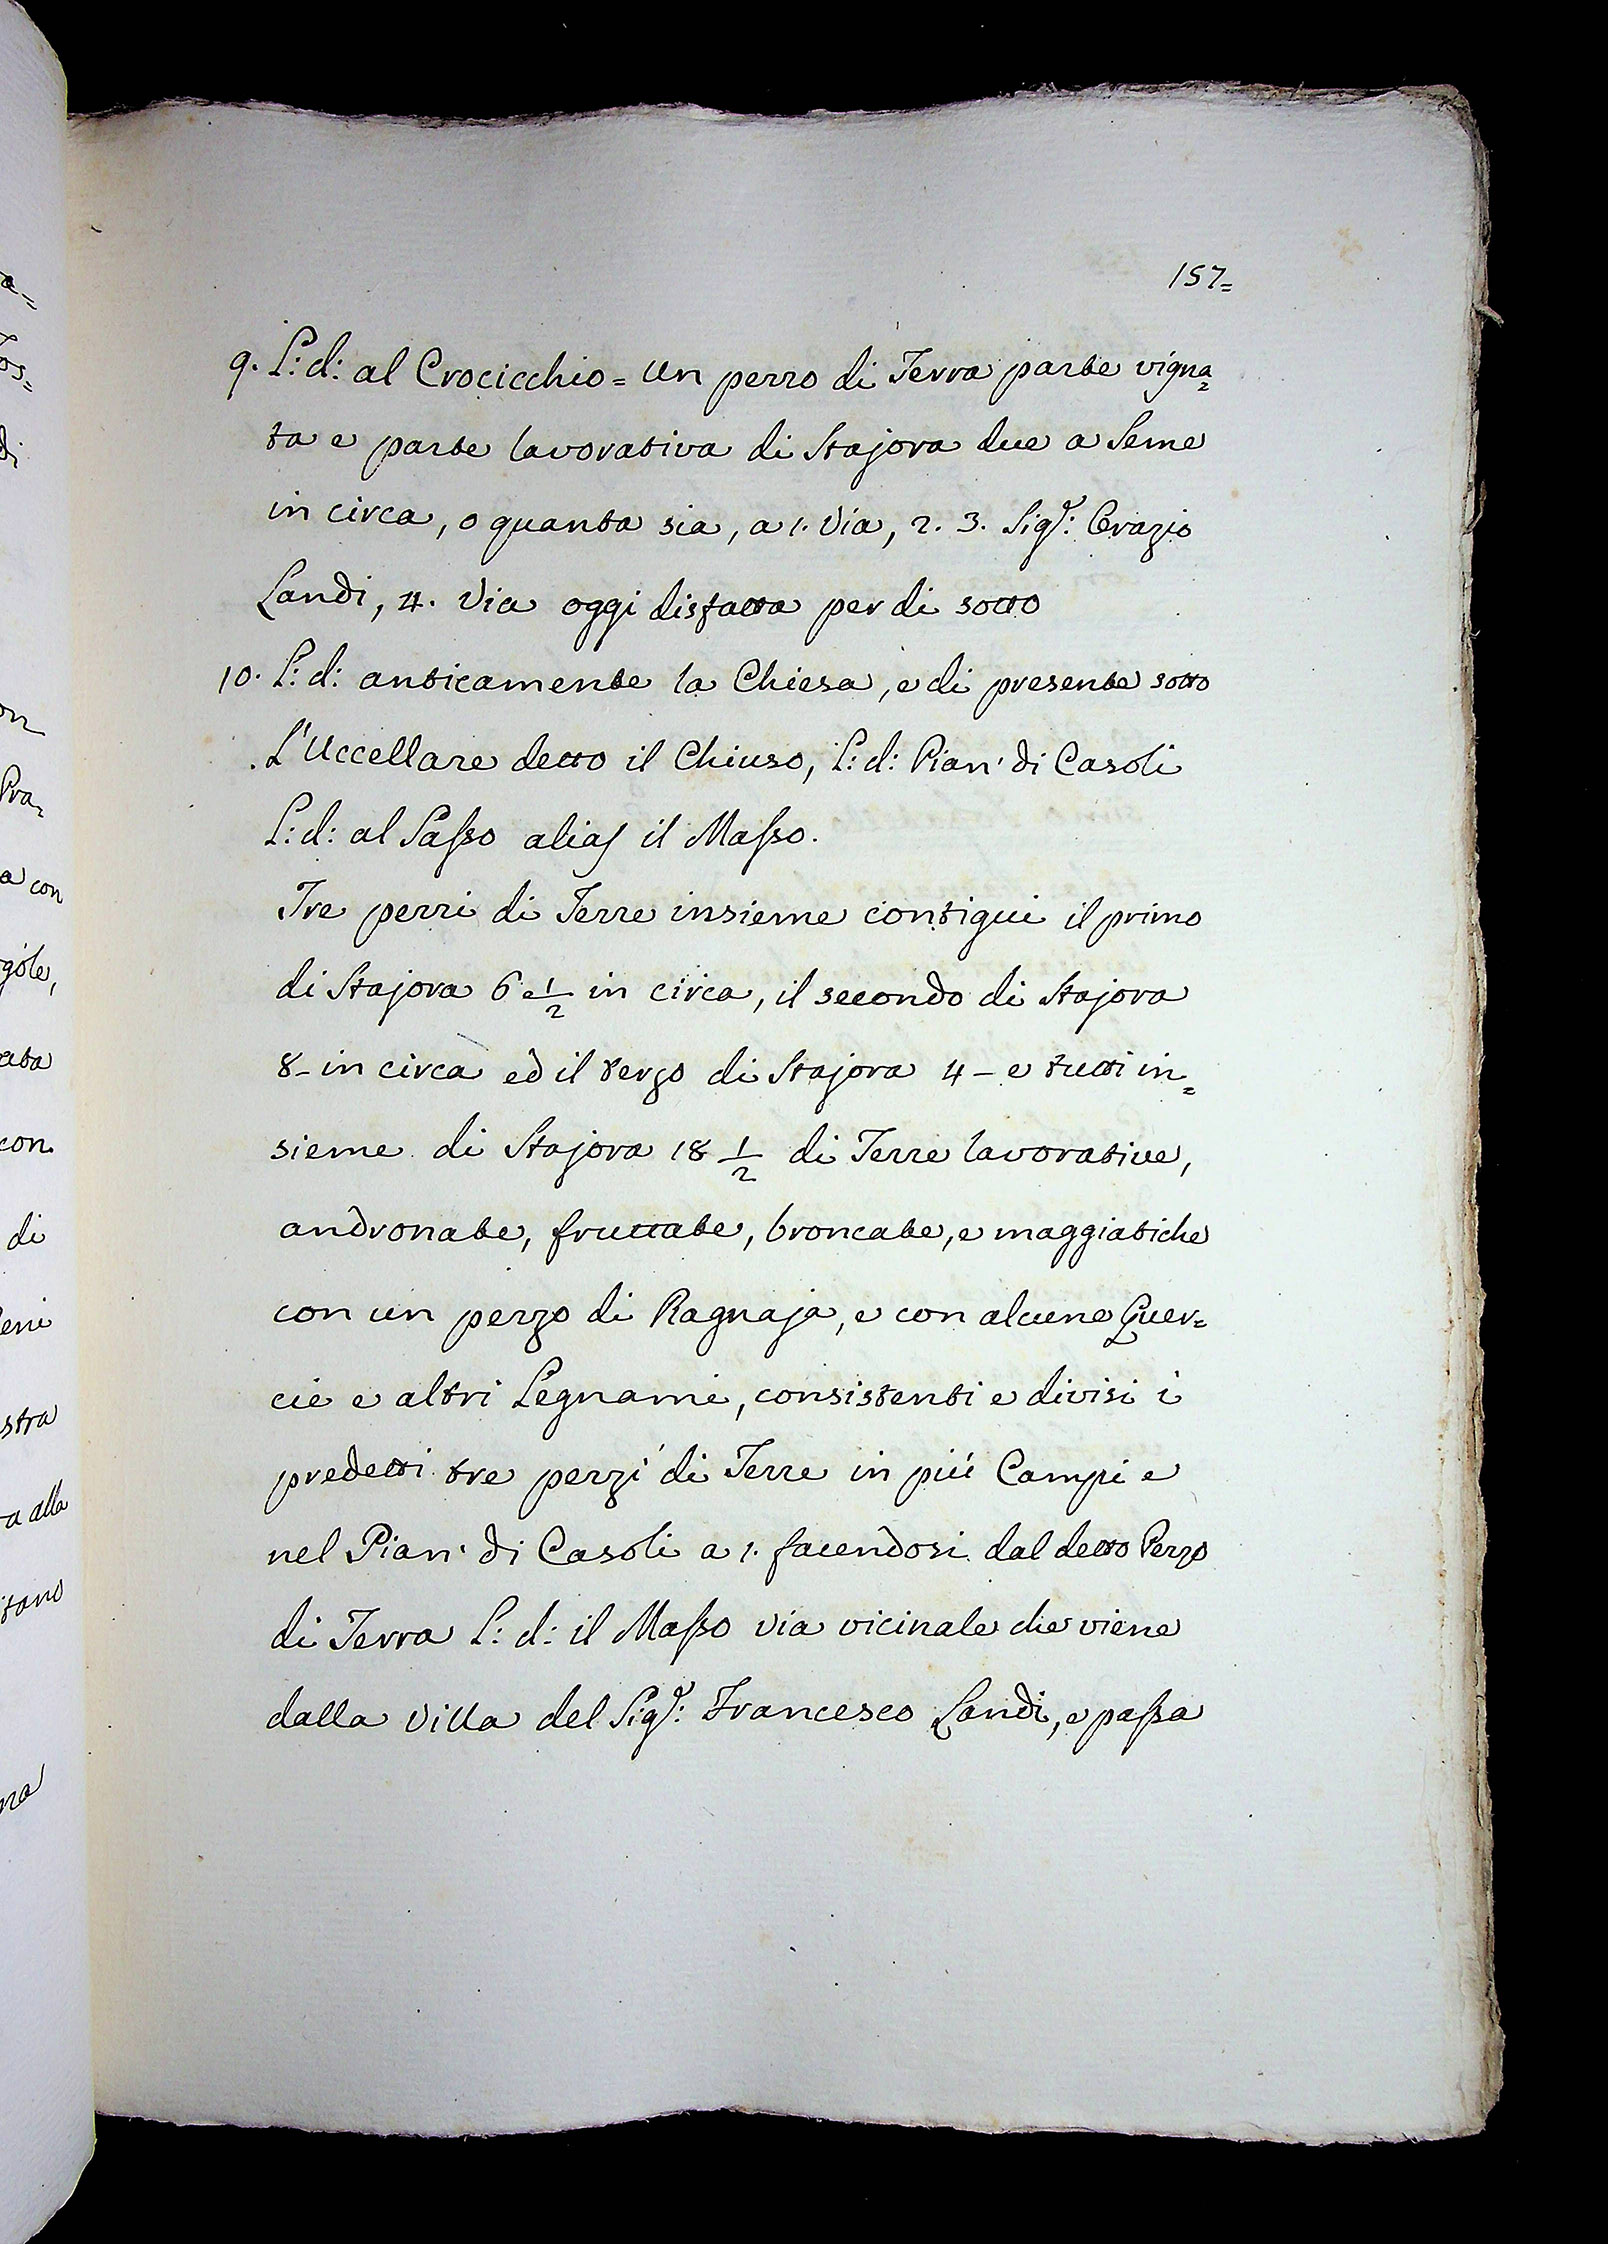 157=
9. L: d: al Crocicchio = Un pezzo di Terra parte vigna=
ta e parte lavorativa di Stajora due a Seme
in circa, o quanta sia, a 1. Via, 2. 3. Sig.r: Orazio
Landi, 4. Via oggi disfatta per di sotto
10. L: d: anticamente la Chiesa, e di presente sotto
L'Uccellare detto il Chiuso, L: d: Pian' di Casoli
L: d: al Saſso alias il Maſso.
Tre pezzi di Terre insieme contigui il primo
di Stajora 6 e 1/2 in circa, il secondo di Stajora
8 - in circa ed il terzo di Stajora 4 - e tutti in=
sieme di Stajora 18 1/2 di Terre lavorative,
andronate, fruttate, broncate, e maggiatiche
con un pezzo di Ragnaja, e con alcune Quer=
cie e altri Legnami, consistenti e divisi i
predetti tre pezzi di Terre in più Campi e
nel Pian' di Casoli a 1. facendosi dal detto Pezzo
di Terra L: d: il Maſso via vicinale che viene
dalla Villa del Sig.r: Francesco Landi, e paſsa
a=
di
on
Pra=
a con
gole,
ata
con
di
eni
stra
a alla
tano
na